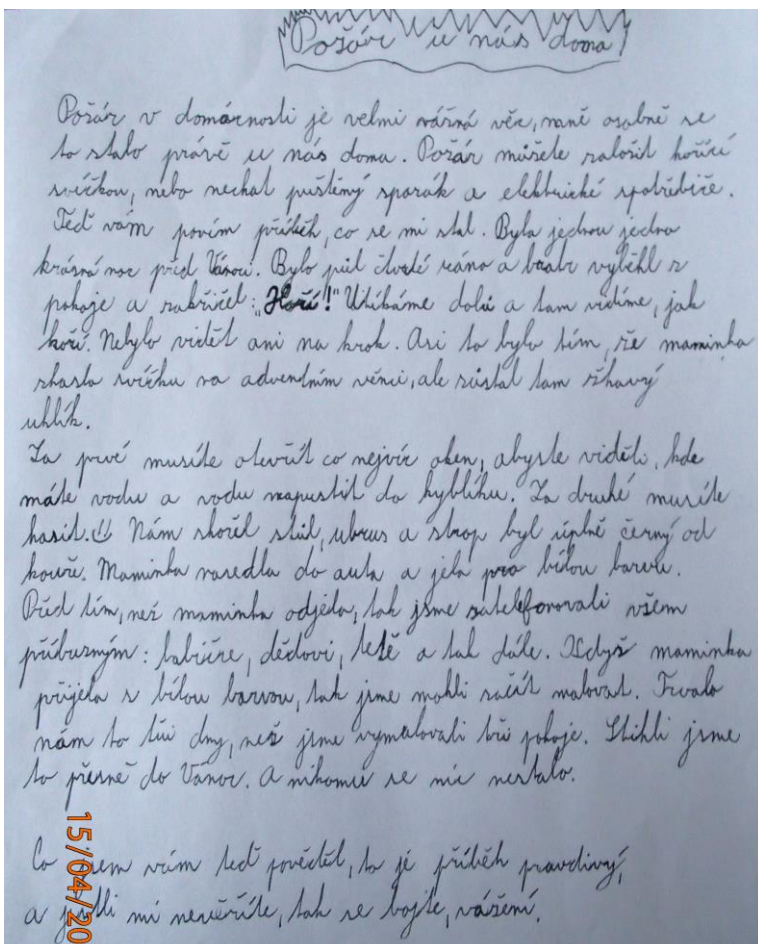 Požár u nás doma
Požár v domácnosti je velmi vážná věc, mně osobně se
to stalo právě u nás doma. Požár můžete založit hořící
svíčkou, nebo nechat puštěný sporák a elektrické spotřebiče.
Teď vám povím příběh, co se mi stal. Byla jednou jedna
krásná noc před Vánoci. Bylo půl čtvrté ráno a bratr vyběhl z
pokoje a zakřičel: „Hoří!" Utíkáme dolů a tam vidíme, jak
hoří. Nebylo vidět ani na krok. Asi to bylo tím, že maminka
zhasla svíčku na adventním věnci, ale zůstal tam žhavý
uhlík.
Za prvé musíte otevřít co nejvíc oken, abyste viděli, kde
máte vodu a vodu napustit do kyblíku. Za druhé musíte
hasit. Nám shořel stůl, ubrus a strop byl úplně černý od
kouře. Maminka nasedla do auta a jela pro bílou barvu.
Před tím, než maminka odjela, tak jsme zatelefonovali všem
příbuzným: babičce, dědovi, tetě a tak dále. Když maminka
přijela s bílou barvou, tak jsme mohli začít malovat. Trvalo
nám to tři dny, než jsme vymalovali tři pokoje. Stihli jsme
to přesně do Vánoc. A nikomu se nic nestalo.
Co jsem vám teď pověděl, to je příběh pravdivý,
a jestli mi nevěříte, tak se bojte, vážení.
15/04/20